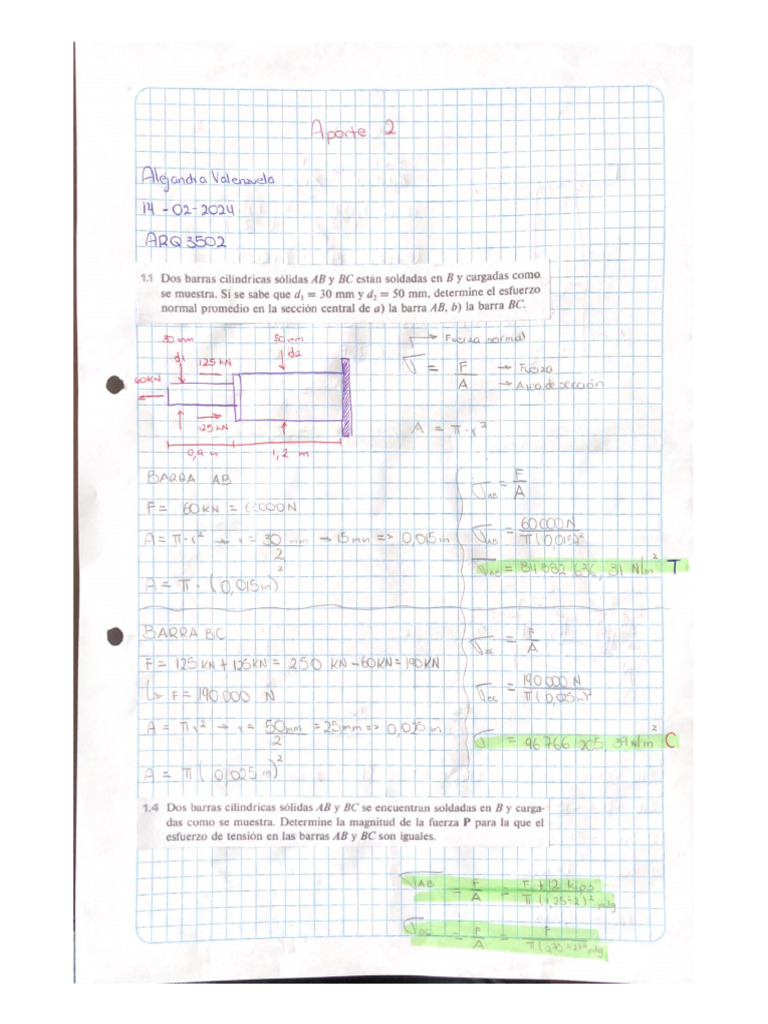 Aporte 2
Alejandra Valenzuela
14-02-2024
ARQ3502
1.1 Dos barras cilíndricas sólidas AB y BC están soldadas en B y cargadas como
se muestra. Si se sabe que d₁ = 30 mm y d₂ = 50 mm, determine el esfuerzo
normal promedio en la sección central de a) la barra AB, b) la barra BC.
30 mm
50mm
d1
125 KN
d2
60KN
125 KN
0,9 m
1,2 m
Fuerza normal
σ = F/A → Fuerza
→ Area de sección
A = π·r²
BARRA AB
F = 60KN = 60000N
A = π·r² → r = 30 mm/2 → 15mm => 0,015m
A = π · (0,015m)²
σAB = F/A
σAB = 60000N/π(0,015)²
σAB = 84 882 636,31 N/m² T
BARRA BC
F = 125KN + 125KN = 250 KN - 60KN = 190KN
↳ F = 190000 N
A = πr² → r = 50mm/2 = 25mm => 0,025m
A = π(0,025m)²
σBC = F/A
σBC = 190000 N/π(0,025m)²
σ = 96 766 205,39 N/m² C
1.4 Dos barras cilíndricas sólidas AB y BC se encuentran soldadas en B y carga-
das como se muestra. Determine la magnitud de la fuerza P para la que el
esfuerzo de tensión en las barras AB y BC son iguales.
σAB = F/A = F+12 kips/π(1,25÷2)² pulg
σBC = F/A = F/π(0,75÷2)² pulg